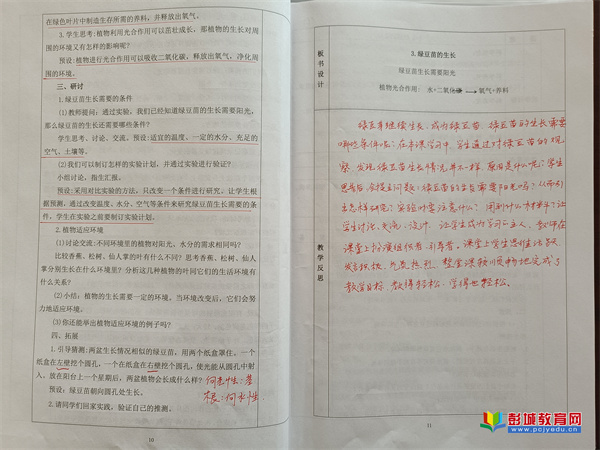 在绿色叶片中制造生存所需的养料，并释放出氧气。
3.学生思考：植物利用光合作用可以茁壮成长，那植物的生长对周
围的环境又有怎样的影响呢？
预设：植物进行光合作用可以吸收二氧化碳，释放出氧气，净化周
围的环境。
三、研讨
1.绿豆苗生长需要的条件
(1)教师提问：通过实验，我们已经知道绿豆苗的生长需要阳光，
那么绿豆苗的生长还需要哪些条件？
学生思考、讨论、交流。预设:适宜的温度、一定的水分、充足的
空气、土壤等。
(2)我们可以制订怎样的实验计划，并通过实验进行验证？
小组讨论，指生汇报。
预设:采用对比实验的方法，只改变一个条件进行研究。让学生根
据预测，通过改变温度、水分、空气等条件来研究绿豆苗生长需要的条
件，学生在实验之前要制订实验计划。
2.植物适应环境
(1)讨论交流:不同环境里的植物对阳光、水分的需求相同吗？
比较香蕉、松树、仙人掌的叶有什么不同？思考香蕉、松树、仙人
掌分别生长在什么环境里？分析这几种植物的叶同它们的生活环境有
什么关系？
(2)小结：植物的生长需要一定的环境。当环境改变后，它们会努
力地适应环境。
(3)你还能举出植物适应环境的例子吗？
四、拓展
1.引导猜测:两盆生长情况相似的绿豆苗，用两个纸盒罩住。一个
纸盒在左壁挖个圆孔，一个在纸盒在右壁挖个圆孔，使光能从圆孔中射
入。放在阳台上一个星期后，两盆植物会长成什么样？
预设：绿豆苗朝向圆孔处生长。
2.请同学们回家实践，验证自己的推测。
向光性：茎
根：向水性
10
板书设计
3.绿豆苗的生长
绿豆苗生长需要阳光
植物光合作用：水+二氧化碳 → 氧气+养料
教学反思
绿豆芽继续生长，成为绿豆苗，绿豆苗的生长需要
哪些条件呢？在本课学习中，学生通过对绿豆苗的观
察，发现绿豆苗生长情况并不一样，原因是什么呢？学生
思考后会提出问题：绿豆苗的生长需要阳光吗？从而引
出怎样研究？实验时要注意什么？用到什么材料等？让
学生讨论、交流、设计，让学生成为学习的主人，教师在
课堂上扮演组织者、引导者。课堂上学生思维活跃，
发言积极，气氛热烈，整堂课顺顺畅地完成了
教学目标，教得轻松，学得也轻松。
11
彭城教育网
www.pcjyedu.cn